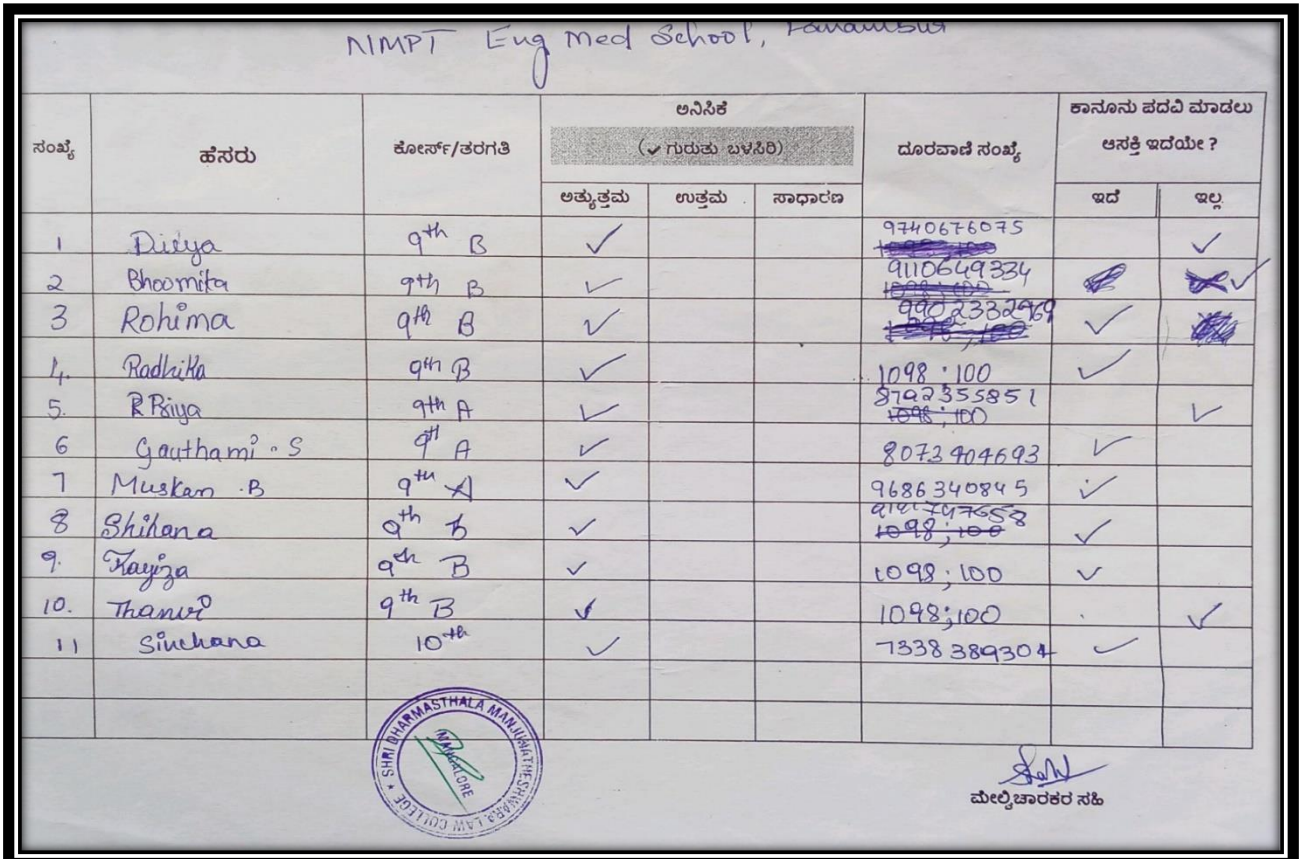 NIMPT Eng Med School, Panambur
ಸಂಖ್ಯೆ ಹೆಸರು ಕೋರ್ಸ್/ತರಗತಿ ಅನಿಸಿಕೆ (✓ ಗುರುತು ಬಳಸಿರಿ) ದೂರವಾಣಿ ಸಂಖ್ಯೆ ಕಾನೂನು ಪದವಿ ಮಾಡಲು ಆಸಕ್ತಿ ಇದೆಯೇ ?
ಅತ್ಯುತ್ತಮ ಉತ್ತಮ ಸಾಧಾರಣ ಇದೆ ಇಲ್ಲ
1 Divya 9th B ✓ 9740676075 ✓
2 Bhoomika 9th B ✓ 9110649334 ✓
3 Rohima 9th B ✓ 9902332969 ✓
4. Radhika 9th B ✓ 1098 ; 100 ✓
5. R Priya 9th A ✓ 8792355851 1098; 100 ✓
6 Gauthami . S 9th A ✓ 8073904693 ✓
7 Muskan .B 9th A ✓ 9686340845 ✓
8 Shihana 9th B ✓ 1098; 100 ✓
9. Kayiza 9th B ✓ 1098; 100 ✓
10. Thanvi 9th B ✓ 1098;100 ✓
11 Sinchana 10th ✓ 7338389304 ✓
SHRI DHARMASTHALA MANJUNATHESHWARA LAW COLLEGE *
MANGALORE
ಮೇಲ್ವಿಚಾರಕರ ಸಹಿ